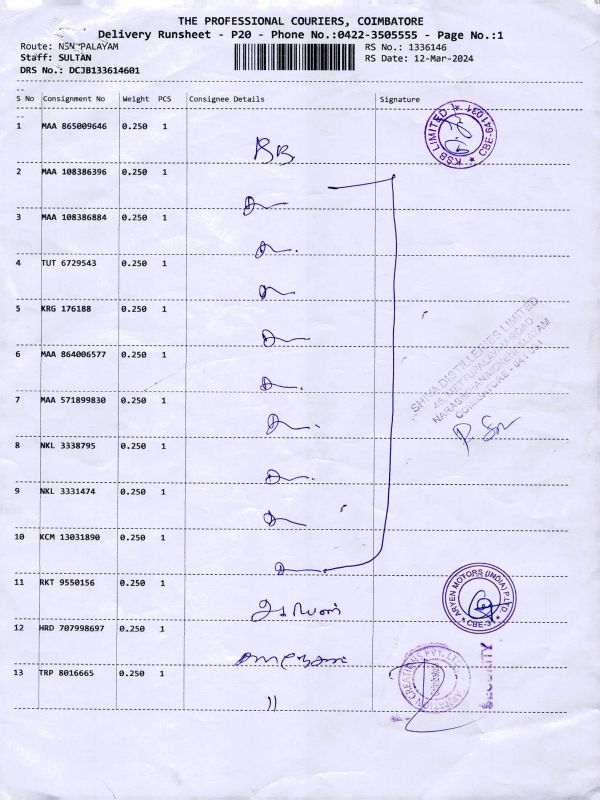 THE PROFESSIONAL COURIERS, COIMBATORE
Delivery Runsheet - P20 - Phone No.:0422-3505555 - Page No.:1
Route: NSN PALAYAM RS No.: 1336146
Staff: SULTAN RS Date: 12-Mar-2024
DRS No.: DCJB133614601
S No Consignment No Weight PCS Consignee Details Signature
1 MAA 865009646 0.250 1
KSB LIMITED * CBE-641031 *
2 MAA 108386396 0.250 1
3 MAA 108386884 0.250 1
4 TUT 6729543 0.250 1
5 KRG 176188 0.250 1
SHIVA DISTILLERIES LIMITED
COIMBATORE - 641 031
6 MAA 864006577 0.250 1
7 MAA 571899830 0.250 1
8 NKL 3338795 0.250 1
9 NKL 3331474 0.250 1
10 KCM 13031890 0.250 1
11 RKT 9550156 0.250 1
ARYEN MOTORS (INDIA) P LTD
* CBE-31 *
12 HRD 707998697 0.250 1
13 TRP 8016665 0.250 1
SECURITY